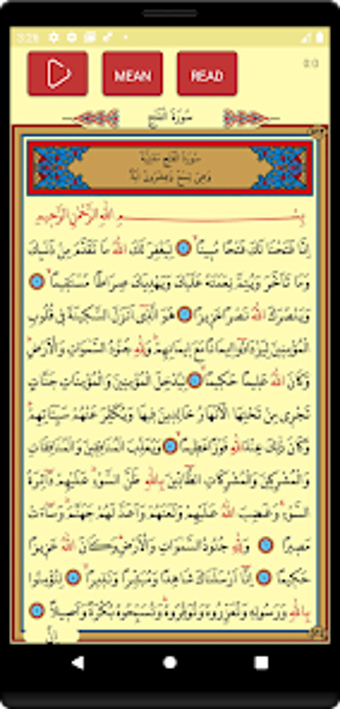 3:26
MEAN
READ
0:0
سُورَةُ الْفَتْحِ
سُورَةُ الْفَتْحِ مَدَنِيَّةٌ
وَهِيَ تِسْعٌ وَعِشْرُونَ اٰيَةً
بِسْمِ اللّٰهِ الرَّحْمٰنِ الرَّحِيمِ
اِنَّا فَتَحْنَا لَكَ فَتْحًا مُبِينًا لِيَغْفِرَ لَكَ اللّٰهُ مَا تَقَدَّمَ مِنْ ذَنْبِكَ
وَمَا تَاَخَّرَ وَيُتِمَّ نِعْمَتَهُ عَلَيْكَ وَيَهْدِيَكَ صِرَاطًا مُسْتَقِيمًا
وَيَنْصُرَكَ اللّٰهُ نَصْرًا عَزِيزًا هُوَ الَّذِٓي اَنْزَلَ السَّكِينَةَ فِي قُلُوبِ
الْمُؤْمِنِينَ لِيَزْدَادُٓوا اِيمَانًا مَعَ اِيمَانِهِمْ وَلِلّٰهِ جُنُودُ السَّمٰوَاتِ وَالْاَرْضِ
وَكَانَ اللّٰهُ عَلِيمًا حَكِيمًا لِيُدْخِلَ الْمُؤْمِنِينَ وَالْمُؤْمِنَاتِ جَنَّاتٍ
تَجْرِي مِنْ تَحْتِهَا الْاَنْهَارُ خَالِدِينَ فِيهَا وَيُكَفِّرَ عَنْهُمْ سَيِّـَٔاتِهِمْ
وَكَانَ ذٰلِكَ عِنْدَ اللّٰهِ فَوْزًا عَظِيمًا وَيُعَذِّبَ الْمُنَافِقِينَ وَالْمُنَافِقَاتِ
وَالْمُشْرِكِينَ وَالْمُشْرِكَاتِ الظَّٓانِّينَ بِاللّٰهِ ظَنَّ السَّوْءِ عَلَيْهِمْ دَٓائِرَةُ
السَّوْءِ وَغَضِبَ اللّٰهُ عَلَيْهِمْ وَلَعَنَهُمْ وَاَعَدَّ لَهُمْ جَهَنَّمَ وَسَٓاءَتْ
مَصِيرًا وَلِلّٰهِ جُنُودُ السَّمٰوَاتِ وَالْاَرْضِ وَكَانَ اللّٰهُ عَزِيزًا
حَكِيمًا اِنَّٓا اَرْسَلْنَاكَ شَاهِدًا وَمُبَشِّرًا وَنَذِيرًا لِتُؤْمِنُوا
بِاللّٰهِ وَرَسُولِهِ وَتُعَزِّرُوهُ وَتُوَقِّرُوهُ وَتُسَبِّحُوهُ بُكْرَةً وَاَصِيلًا
اِنَّ